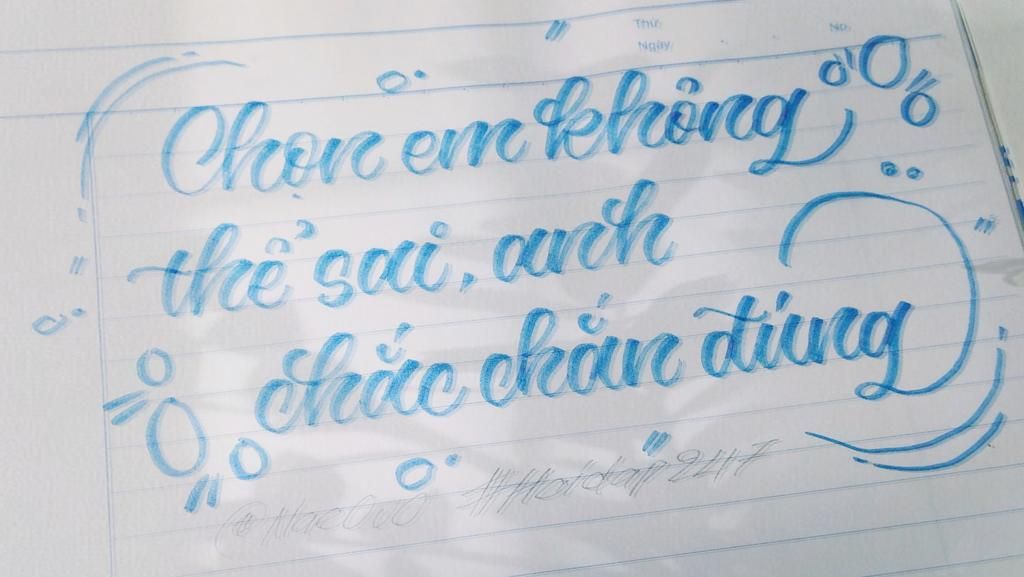 Thứ:
No.
Ngày:
Chọn em không
thể sai, anh
chắc chắn đúng
#Hoidap247